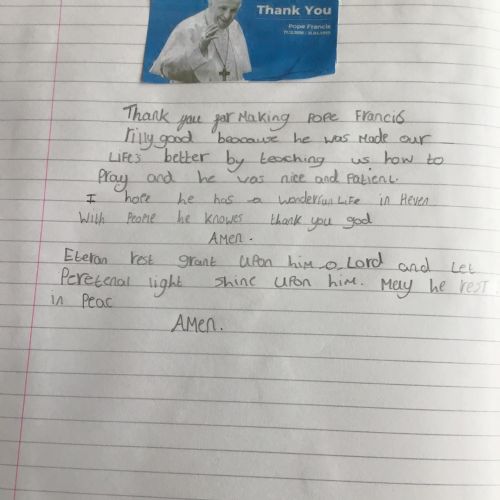 Thank You
Pope Francis
Thank you for Making Pope Francis
rilly good becouse he was Made our
Life's better by teaching us how to
Pray and he was nice and Patient.
I hope he has a wonderfun Life in Heven
With People he knowes thank you god
AMen.
Eteran rest grant upon him o Lord and Let
Peretenal light shine upon him. May he rest
in Peac
AMen.